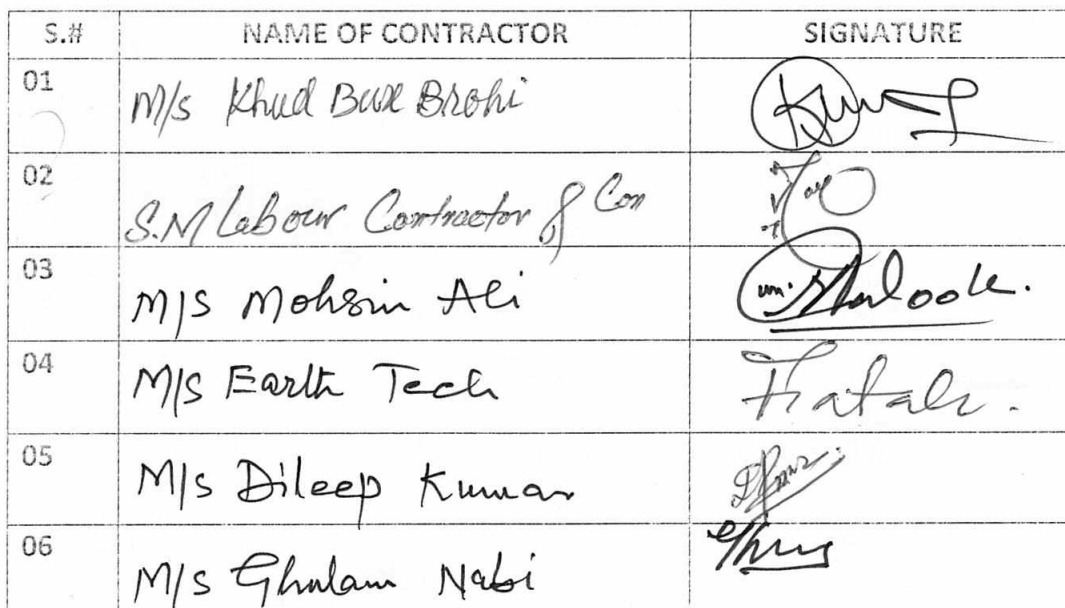 S.# NAME OF CONTRACTOR SIGNATURE
01 M/s Khud Bux Brohi
02 S.M Labour Contractor & Con
03 M/S Mohsin Ali
04 M/S Earth Tech
05 M/S Dileep Kumar
06 M/S Ghulam Nabi